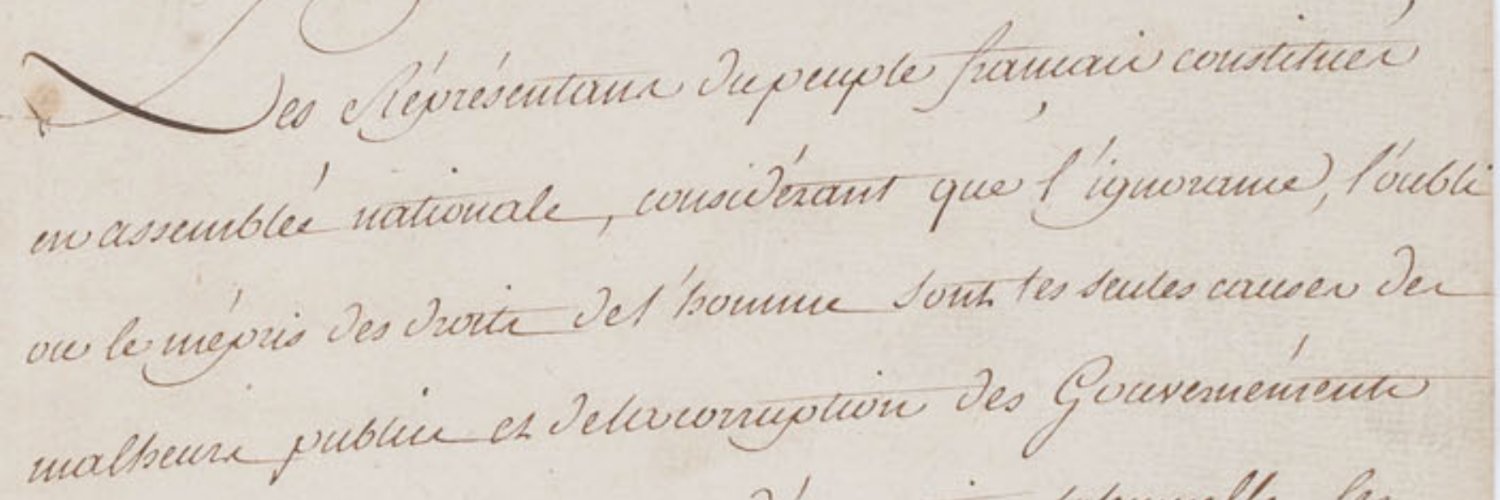 Les Réprésentans du peuple français constitués
en assemblée nationale, considérant que l'ignorance, l'oubli
ou le mépris des droits de l'homme sont les seules causes des
malheurs publics et de la corruption des Gouvernéments